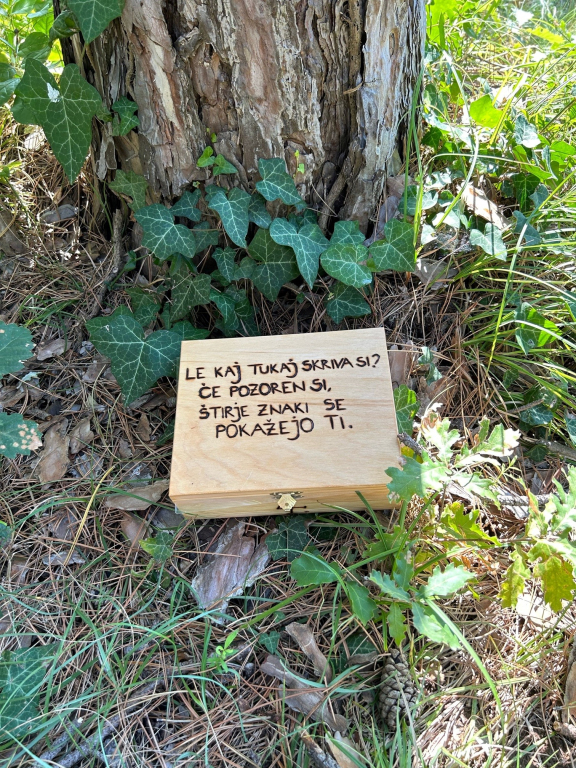 LE KAJ TUKAJ SKRIVA SI?
ČE POZOREN SI,
ŠTIRJE ZNAKI SE
POKAŽEJO TI.